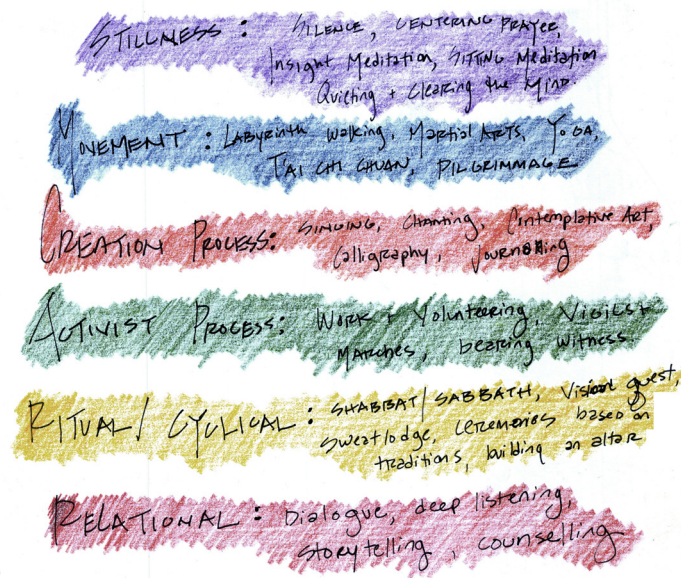 STILLNESS: SILENCE, CENTERING PRAYER,
Insight Meditation, SITTING Meditation
Quieting + Clearing the Mind.
MOVEMENT: LABYRINTH Walking, MARTIAL ARTS, YOGA,
TAI CHI CHUAN, PILGRIMMAGE
CREATION PROCESS: SINGING, CHANTING, Contemplative Art,
Calligraphy, JOURNALING
ACTIVIST PROCESS: WORK + Volunteering, VIGILS +
MARCHES, bearing WITNESS
RITUAL/CYCLICAL: SHABBAT/SABBATH, Vision quest,
Sweatlodge, CEREMONIES based on
traditions, building an altar
RELATIONAL: Dialogue, deep listening,
storytelling, counselling